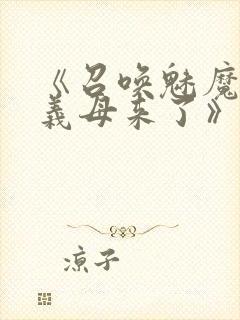 《召唤魅魔
义母来了》
凉子